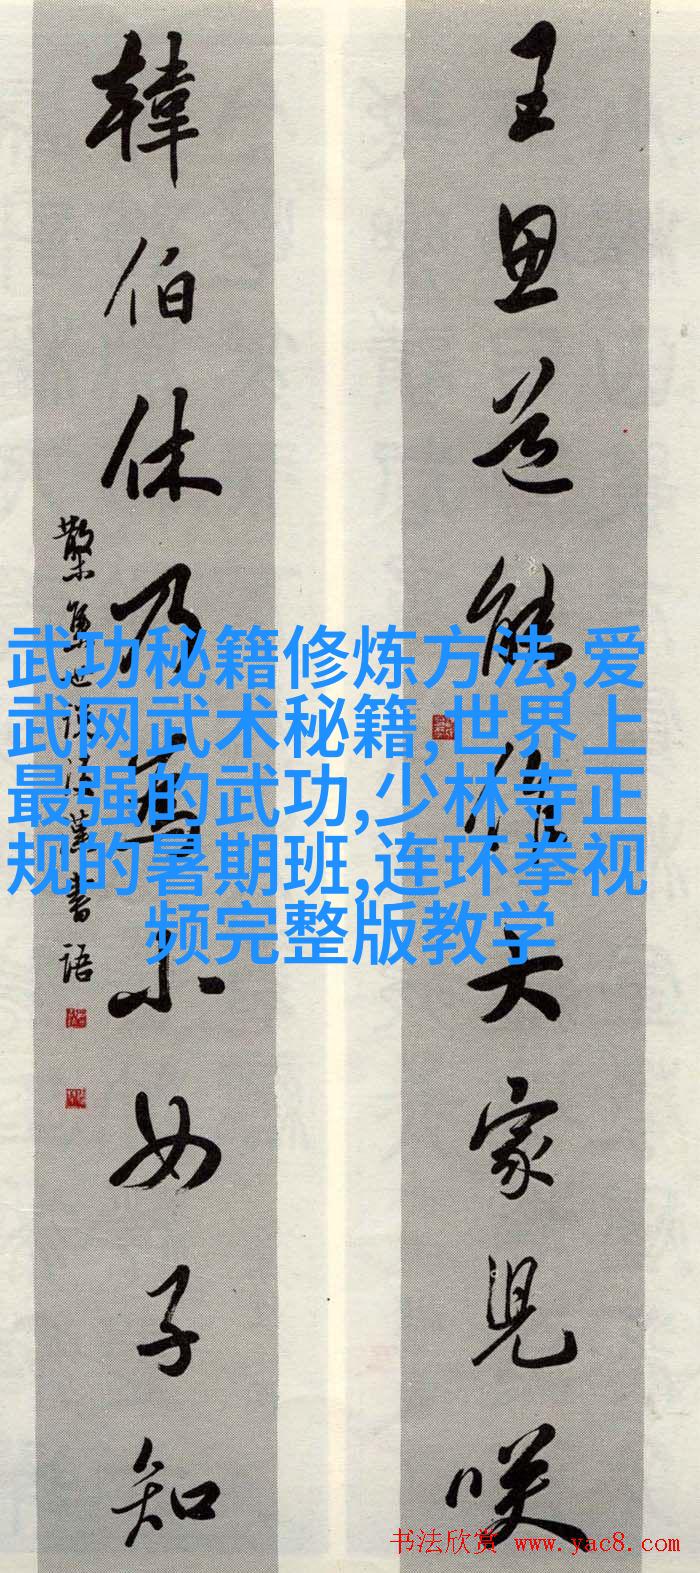 王思道能作大家兒咲
韓伯休乃為小女子知
集世說後漢書語
武功秘籍修炼方法,爱
武网武术秘籍,世界上
最强的武功,少林寺正
规的暑期班,连环拳视
频完整版教学
书法欣赏 www.yac8.com